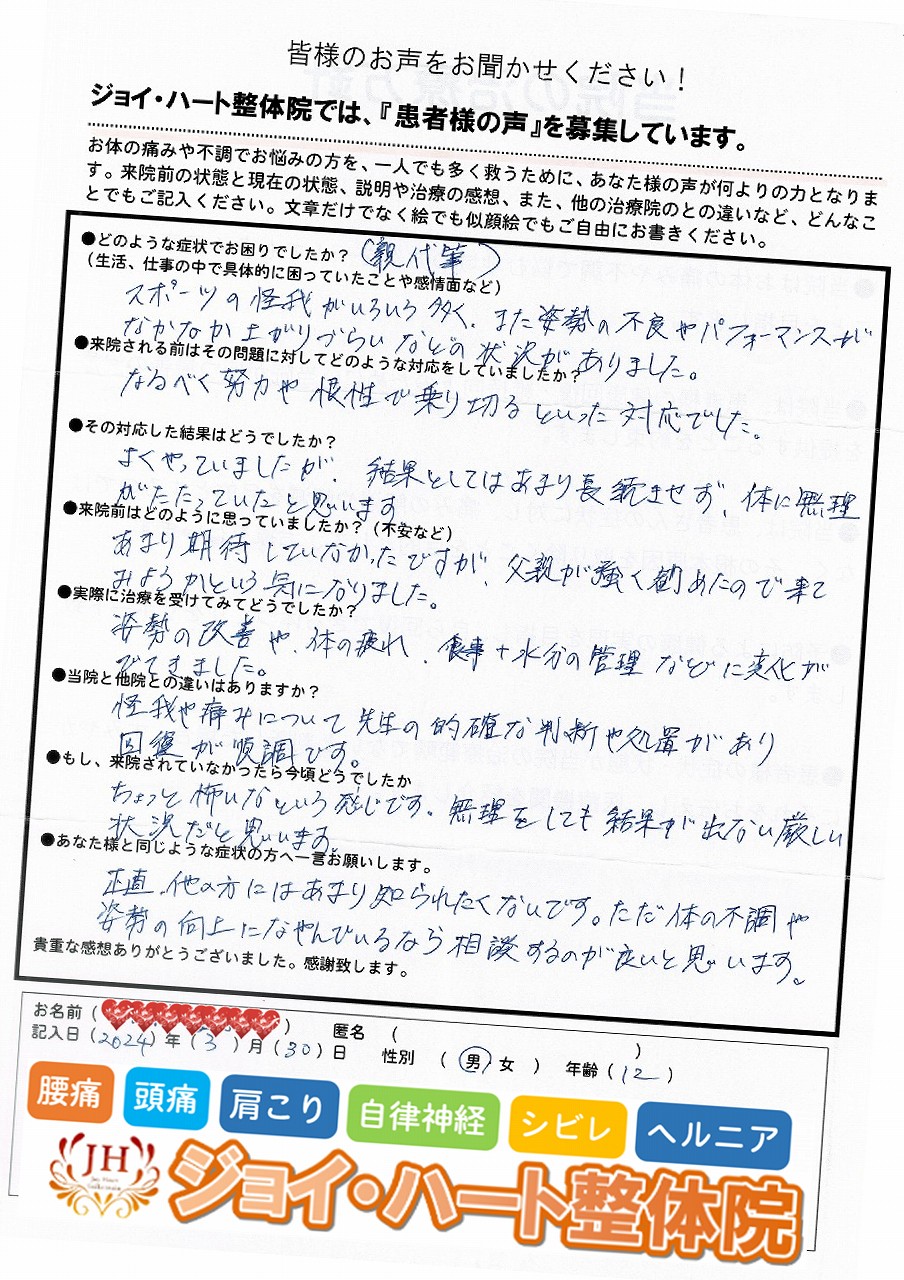 皆様のお声をお聞かせください！
ジョイ・ハート整体院では、『患者様の声』を募集しています。
お体の痛みや不調でお悩みの方を、一人でも多く救うために、あなた様の声が何よりの力となりま
す。来院前の状態と現在の状態、説明や治療の感想、また、他の治療院のとの違いなど、どんなこ
とでもご記入ください。文章だけでなく絵でも似顔絵でもご自由にお書きください。
●どのような症状でお困りでしたか？（親代筆）
（生活、仕事の中で具体的に困っていたことや感情面など）
スポーツの怪我がいろいろ多く、また姿勢の不良やパフォーマンスが
なかなか上がりづらいなどの状況がありました。
●来院される前はその問題に対してどのような対応をしていましたか？
なるべく努力や根性で乗り切るといった対応でした。
●その対応した結果はどうでしたか？
よくやっていましたが、結果としてはあまり長続きせず、体に無理
がたたっていたと思います
●来院前はどのように思っていましたか？（不安など）
あまり期待していなかったですが、父親が強く勧めたので来て
みようかという気になりました。
●実際に治療を受けてみてどうでしたか？
姿勢の改善や、体の疲れ、食事＋水分の管理などに変化が
でてきました。
●当院と他院との違いはありますか？
怪我や痛みについて先生の的確な判断や処置があり
回復が順調です。
●もし、来院されていなかったら今頃どうでしたか
ちょっと怖いなという感じです。無理をしても結果が出ない厳しい
状況だと思います。
●あなた様と同じような症状の方へ一言お願いします。
正直、他の方にはあまり知られたくないです。ただ体の不調や
姿勢の向上になやんでいるなら相談するのが良いと思います。
貴重な感想ありがとうございました。感謝致します。
お名前（ ） 匿名（ ）
記入日（2024）年（3）月（30）日 性別（男 女） 年齢（12）
腰痛 頭痛 肩こり 自律神経 シビレ ヘルニア
JH ジョイ・ハート整体院